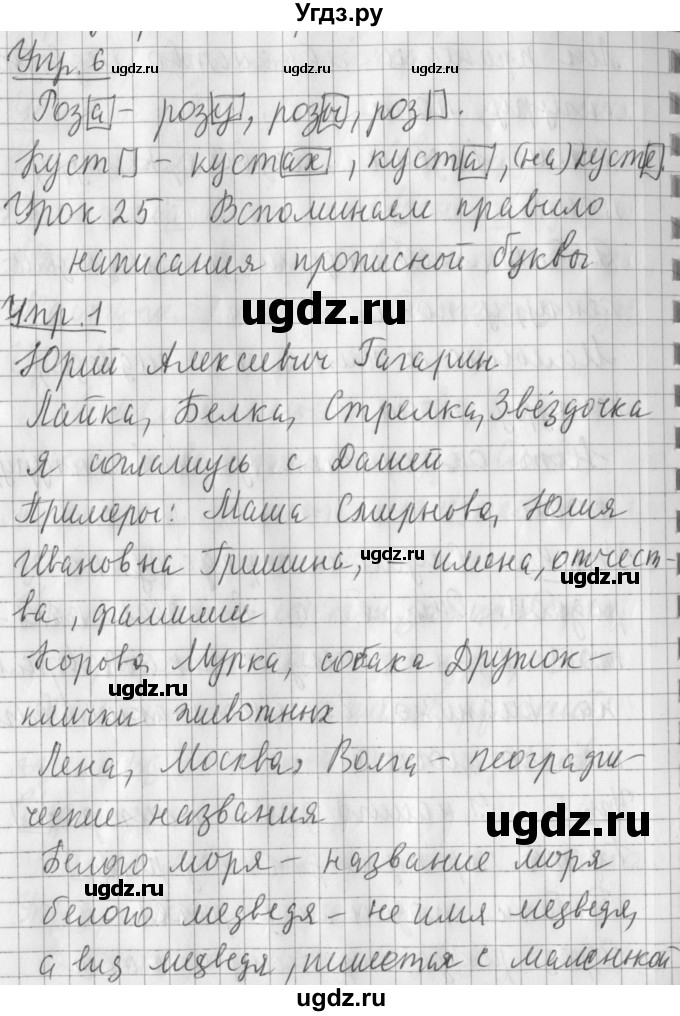 Угдз.ру
Упр. 6
Роз[а] - роз[у], роз[ы], роз[ ].
Куст[ ] - куст[ах], куст[а], (на) куст[е].
Урок 25 Вспоминаем правило
написания прописной буквы
Упр. 1
Юрий Алексеевич Гагарин
Лайка, Белка, Стрелка, Звёздочка
Я соглашусь с Дашей
Примеры: Маша Смирнова, Юлия
Ивановна Гришина, - имена, отчест-
ва, фамилии
Корова Мурка, собака Дружок -
клички животных
Лена, Москва, Волга - географи-
ческие названия
Белого моря - название моря
белого медведя - не имя медведя,
а вид медведя, пишется с маленькой
ugdz.ru
ugdz.ru
ugdz.ru
ugdz.ru
ugdz.ru
ugdz.ru
ugdz.ru
ugdz.ru
ugdz.ru
ugdz.ru
ugdz.ru
ugdz.ru